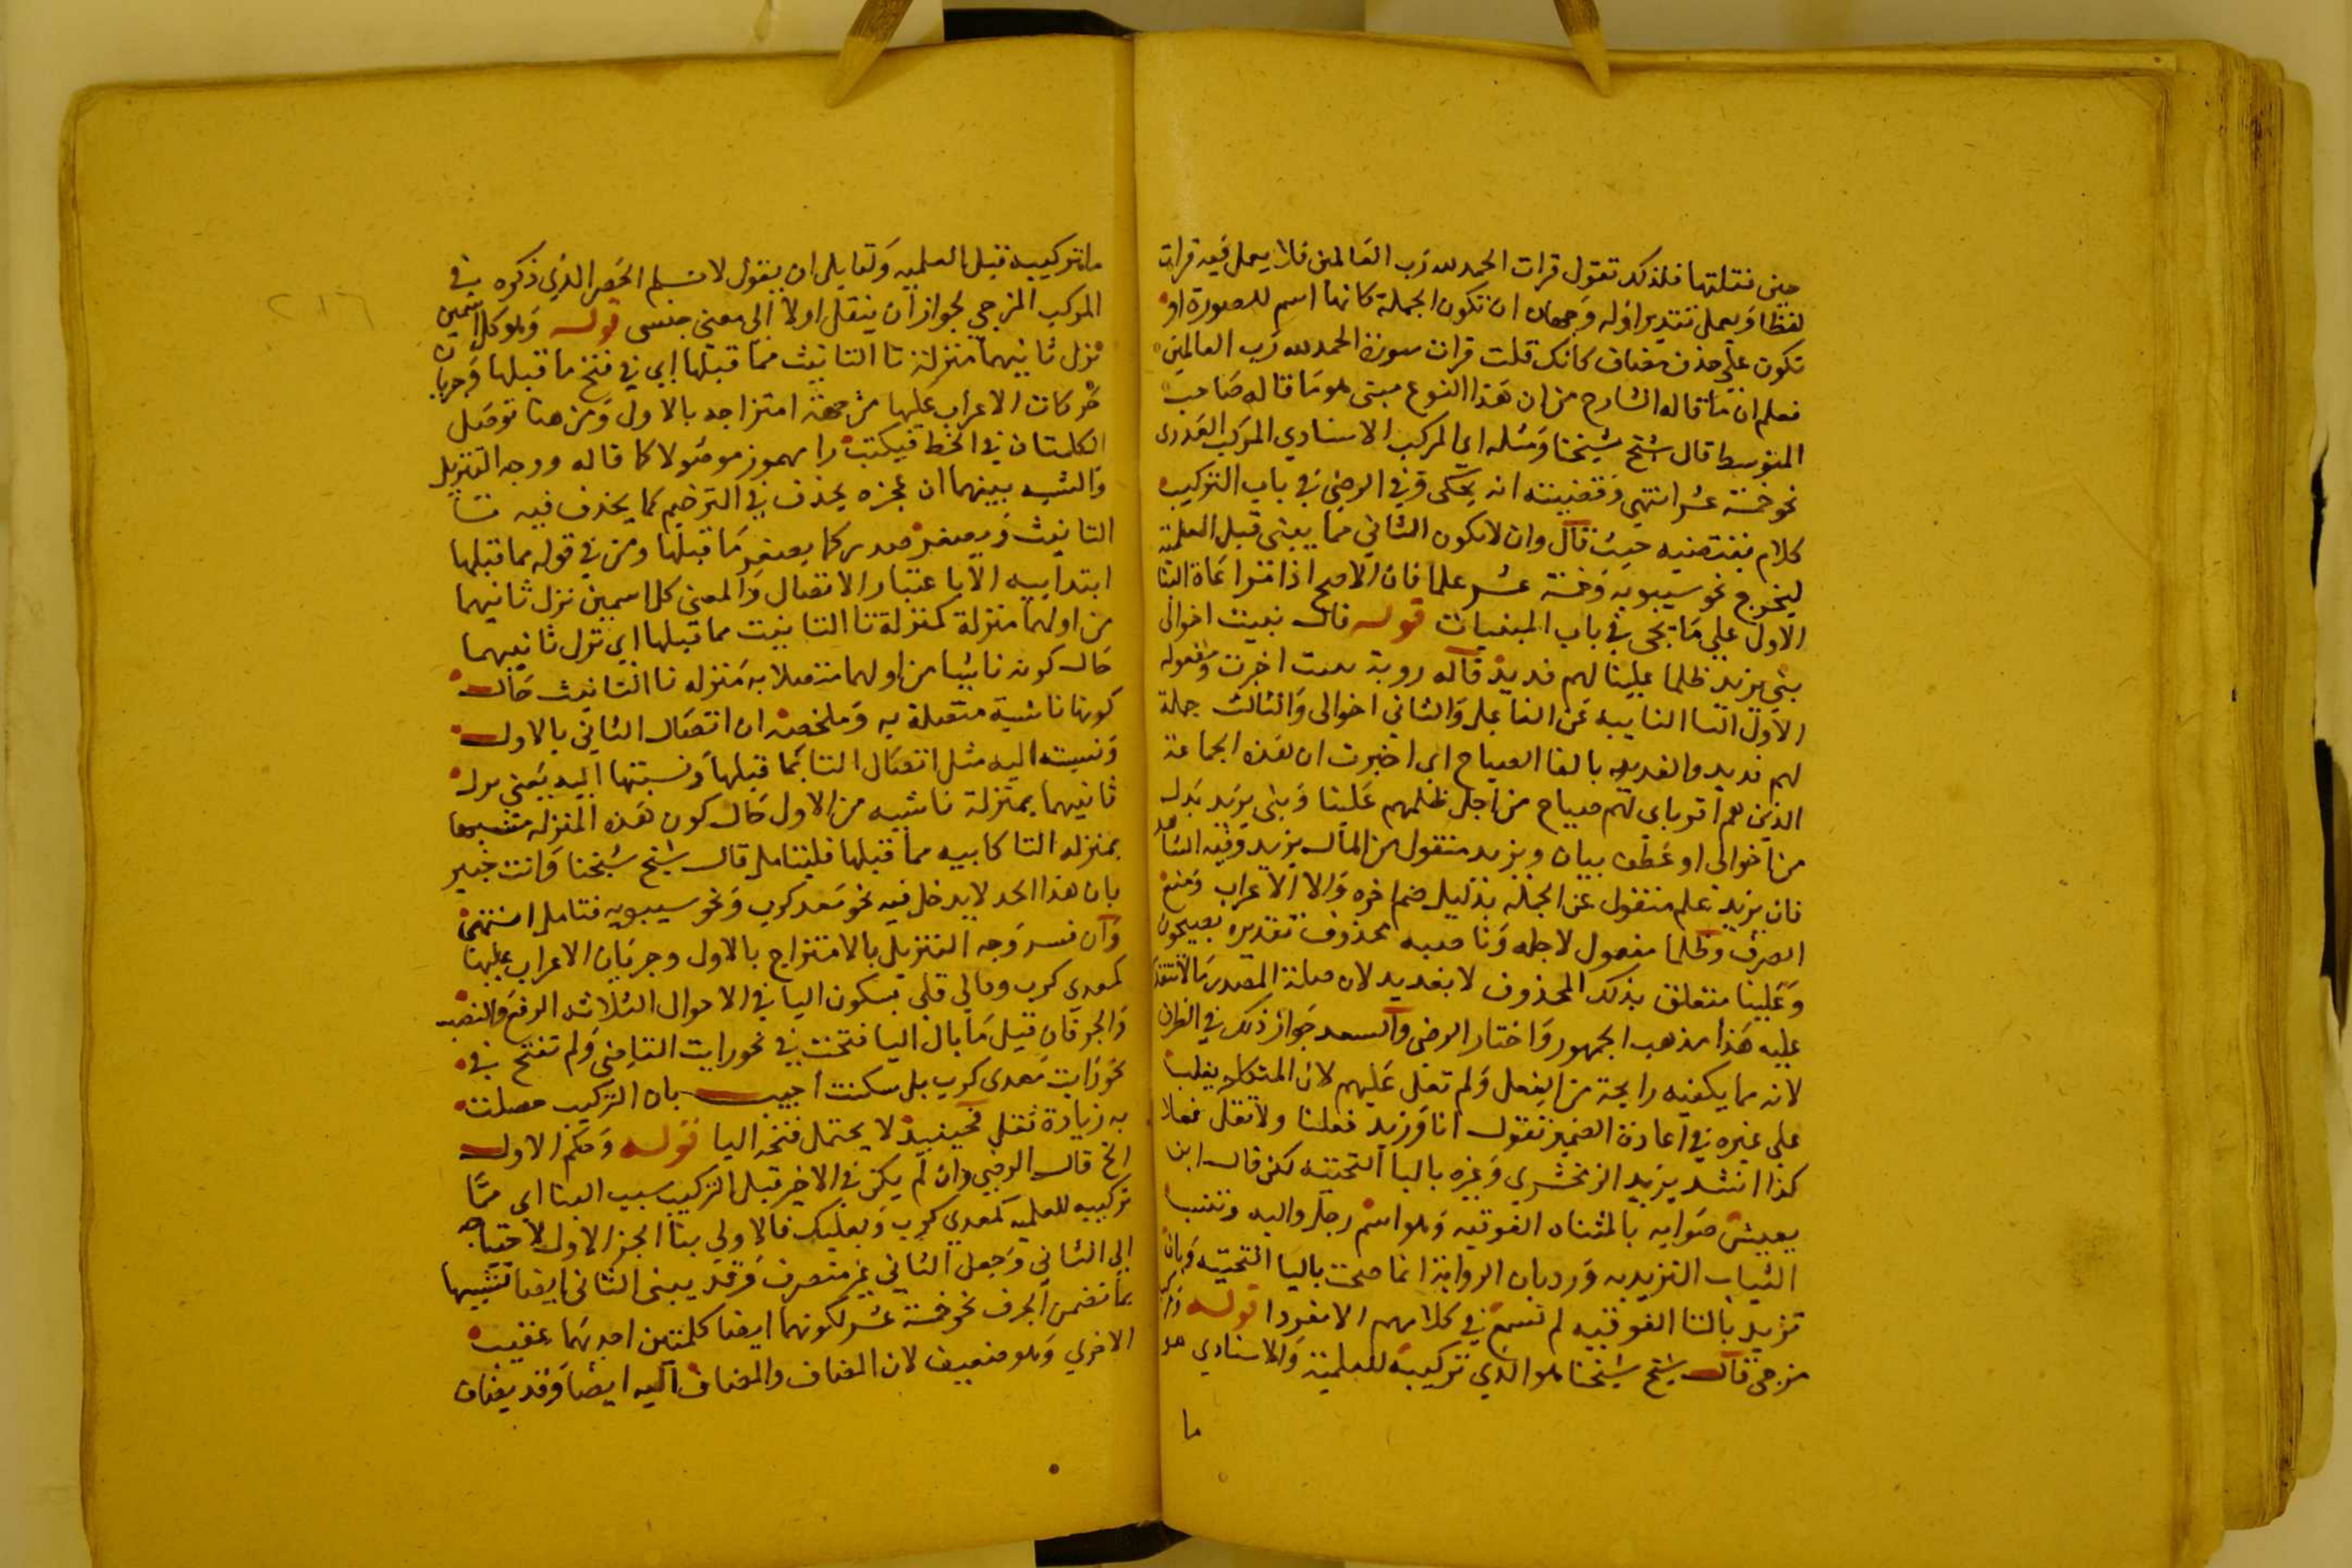 حين نقلتها فلذلك تقول قرات الحمد لله رب العالمين فلا يعمل فيه قرات
لفظا ويعمل تقدير اوله وجهان ان تكون الجملة كانها اسم للصورة او
تكون علي حذف مضاف كانك قلت قرات سورة الحمد لله رب العالمين
فعلم ان ما قاله الشارح من ان هذا النوع مبنى هو ما قاله صاحب
المتوسط قال شيخ شيخنا ومثله اي المركب الاسنادي المركب العددى
نحو خمسة عشر انتهي وقضيته انه يحكى وفي الرضي في باب التركيب
كلام يقتضيه حيث قال وان لا يكون الثاني مما يبنى قبل العلمية
ليخرج نحو سيبويه وخمسة عشر علما فان الاصح اذا مراعاة البنا
الاول علي ما يجى في باب المبنيات قوله قال نبيت اخوالى
بني يزيد ظلما علينا لهم فديد قاله روبة اخبرت ومفعوله
الاول التا النايبه عن الفاعل والثاني اخوالى والثالث جملة
لهم فديد والفديد بالفا الصياح اي اخبرت ان هذه الجماعة
الذين هم اقرباي لهم صياح من اجل ظلمهم علينا وبنى يزيد بدل
من اخوالى او عطف بيان ويزيد منقول من المال يزيد وفيه الشاهد
فان يزيد علم منقول عن الجملة بدليل ضم اخره والا الاعراب ومنع
الصرف وظلما مفعول لاجله وناصبه محذوف تقديره يصيحون
وعلينا متعلق بذلك المحذوف لا بفديد لان صلة المصدر لا تتقدم
عليه هذا مذهب الجمهور واختار الرضى والسعد جواز ذلك في الظرف
لانه مما يكفيه رايحة من الفعل ولم تقل عليهم لان المتكلم يغلب
على غيره في اعادة الضمير تقول انا وزيد فعلنا ولا تقل فعلا
كذا انشد يزيد الزمخشري وغيره باليا التحتيه لكن قال ابن
يعيش صوابه بالمثناه الفوقيه وهو اسم رجل واليه وتنسب
الثياب التزيديه ورد بان الرواية انما صحت باليا التحتيه وبان
تزيد بالتا الفوقيه لم تسمع في كلامهم الا مفردا قوله
مزجى قال شيخ شيخنا هو الذي تركيبه للعلمية والاسنادي هو
ما
٢١٦
ما تركيبه قبل العلميه ولقايل ان يقول لا نسلم الحصر الذي ذكره في
المركب المزجي لجواز ان ينقل اولا الى معني جنسى قوله وهو كل اسمين
نزل ثانيهما منزلة تا التانيث مما قبلها اي في فتح ما قبلها وجريان
حركات الاعراب عليها من جهة امتزاجه بالاول ومن هنا توصل
الكلمتان في الخط فيكتب رامهرمز موصولا كما قاله ووجه التنزيل
والشبه بينهما ان عجزه يحذف في الترخيم كما يحذف فيه تا
التانيث ويصغر صدره كما يصغر ما قبلها ومن في قوله مما قبلها
ابتداييه الا باعتبار الاتصال والمعني كل اسمين نزل ثانيهما
من اولهما منزلة كمنزلة تا التانيث مما قبلها اي نزل ثانيهما
حال كونه ناشيا من اولهما متصلا به منزله تا التانيث حال
كونها ناشية متصلة به وملخصه ان اتصال الثاني بالاول
ونسبته اليه مثل اتصال التا بما قبلها ونسبتها اليه يعني نزل
ثانيهما بمنزلة ناشيه من الاول حال كون هذه المنزله
بمنزله التا كاينه مما قبلها فليتامل قال شيخ شيخنا وانت خبير
بان هذا الحد لا يدخل فيه نحو معد كرب ونحو سيبويه فتامل انتهى
وان فسر وجه التنزيل بالامتزاج بالاول وجريان الاعراب عليها
كمعدي كرب وقالي قلي بسكون اليا في الاحوال الثلاثه الرفع والنصب
والجر فان قيل ما بال اليا فتحت في نحو رايت القاضى ولم تفتح في
نحو رايت معدى كرب بل سكنت اجيب بان التركيب حصلت
به زيادة ثقل فحينيذ لا يحتمل فتحه اليا قوله وحكم الاول
الخ قال الرضي وان لم يكن في الاخير قبل التركيب سبب البنا اى متا
تركيبه للعلميه كمعدي كرب وبعلبك فالاولي بنا الجز الاول لاحتياجه
الي الثاني وجعل الثاني غير منصرف وقد يبنى الثاني ايضا تشبيها
بما تضمن الحرف نحو خمسة عشر لكونهما ايضا كلمتين احديهما عقيب
الاخري وهو ضعيف لان المضاف والمضاف اليه ايضا وقد يضاف